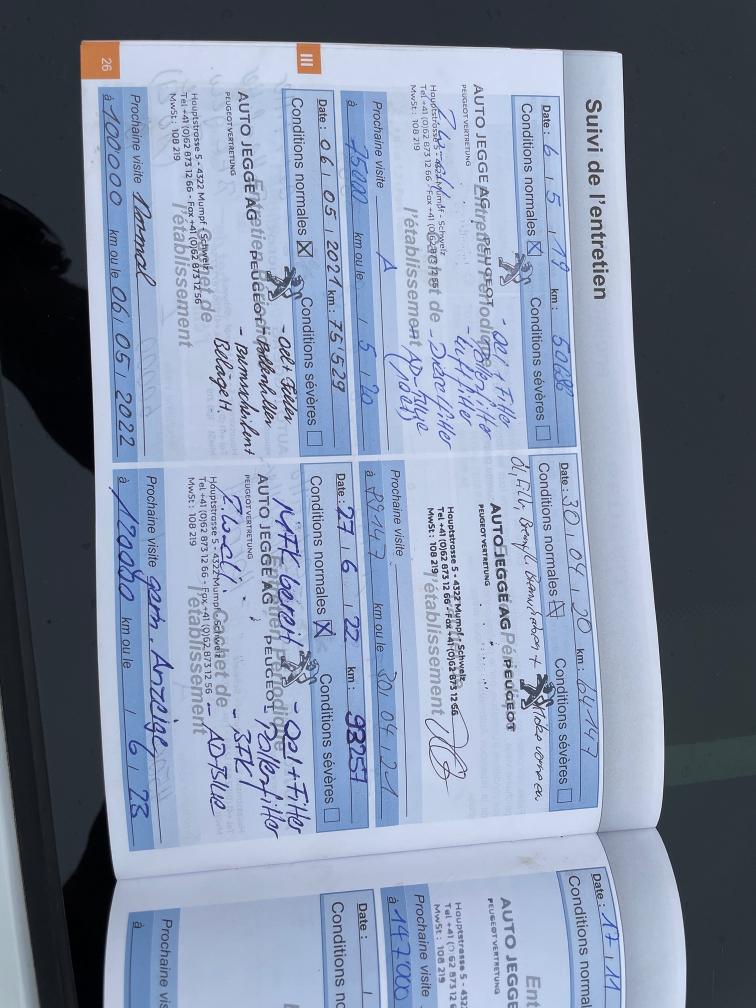 Suivi de l'entretien
Date : 6 / 5 / 19 km :
Conditions normales ☒ Conditions sévères ☐
- Oel + Filter
- Pollenfilter
- Luftfilter
- AD-Blue
AUTO JEGGE AG PEUGEOT
PEUGEOT VERTRETUNG
Hauptstrasse 5 - 4322 Mumpf - Schweiz
Tel +41 (0)62 873 12 66 - Fax +41 (0)62 873 12 56
MwSt : 108 219
Entretien Périodique
Cachet de
l'établissement
Prochaine visite A
à 75000 km ou le / 5 / 20
Date : 30 / 04 / 20 km : 64'147
Conditions normales ☒ Conditions sévères ☐
AUTO JEGGE AG PEUGEOT
PEUGEOT VERTRETUNG
Hauptstrasse 5 - 4322 Mumpf - Schweiz
Tel +41 (0)62 873 12 66 - Fax +41 (0)62 873 12 56
MwSt : 108 219
l'établissement
Prochaine visite
à 89147 km ou le 30 / 04 / 21
III
Date : 06 / 05 / 2021 km : 75'529
Conditions normales ☒ Conditions sévères ☐
- Oel + Filter
- Pollenfilter
Beläge H
AUTO JEGGE AG PEUGEOT
PEUGEOT VERTRETUNG
Hauptstrasse 5 - 4322 Mumpf - Schweiz
Tel +41 (0)62 873 12 66 - Fax +41 (0)62 873 12 56
MwSt : 108 219
Entretien Périodique
Cachet de
l'établissement
Prochaine visite Normal
à 100000 km ou le 06 / 05 / 2022
Date : 27 / 6 / 22 km : 98257
Conditions normales ☒ Conditions sévères ☐
MFK bereit
- Oel + Filter
- Pollenfilter
- BFK
- AD-Blue
AUTO JEGGE AG PEUGEOT
PEUGEOT VERTRETUNG
Hauptstrasse 5 - 4322 Mumpf - Schweiz
Tel +41 (0)62 873 12 66 - Fax +41 (0)62 873 12 56
MwSt : 108 219
Entretien Périodique
Cachet de
l'établissement
Prochaine visite gem. Anzeige
à 120000 km ou le / 6 / 23
26
Date : 17 / 11
Conditions normal
AUTO JEGGE
PEUGEOT VERTRETUNG
Hauptstrasse 5 - 432
Tel +41 (0)62 873 12 6
MwSt : 108 219
Ent
Prochaine visite
à 147000
Date :
Conditions no
Prochaine visite
à